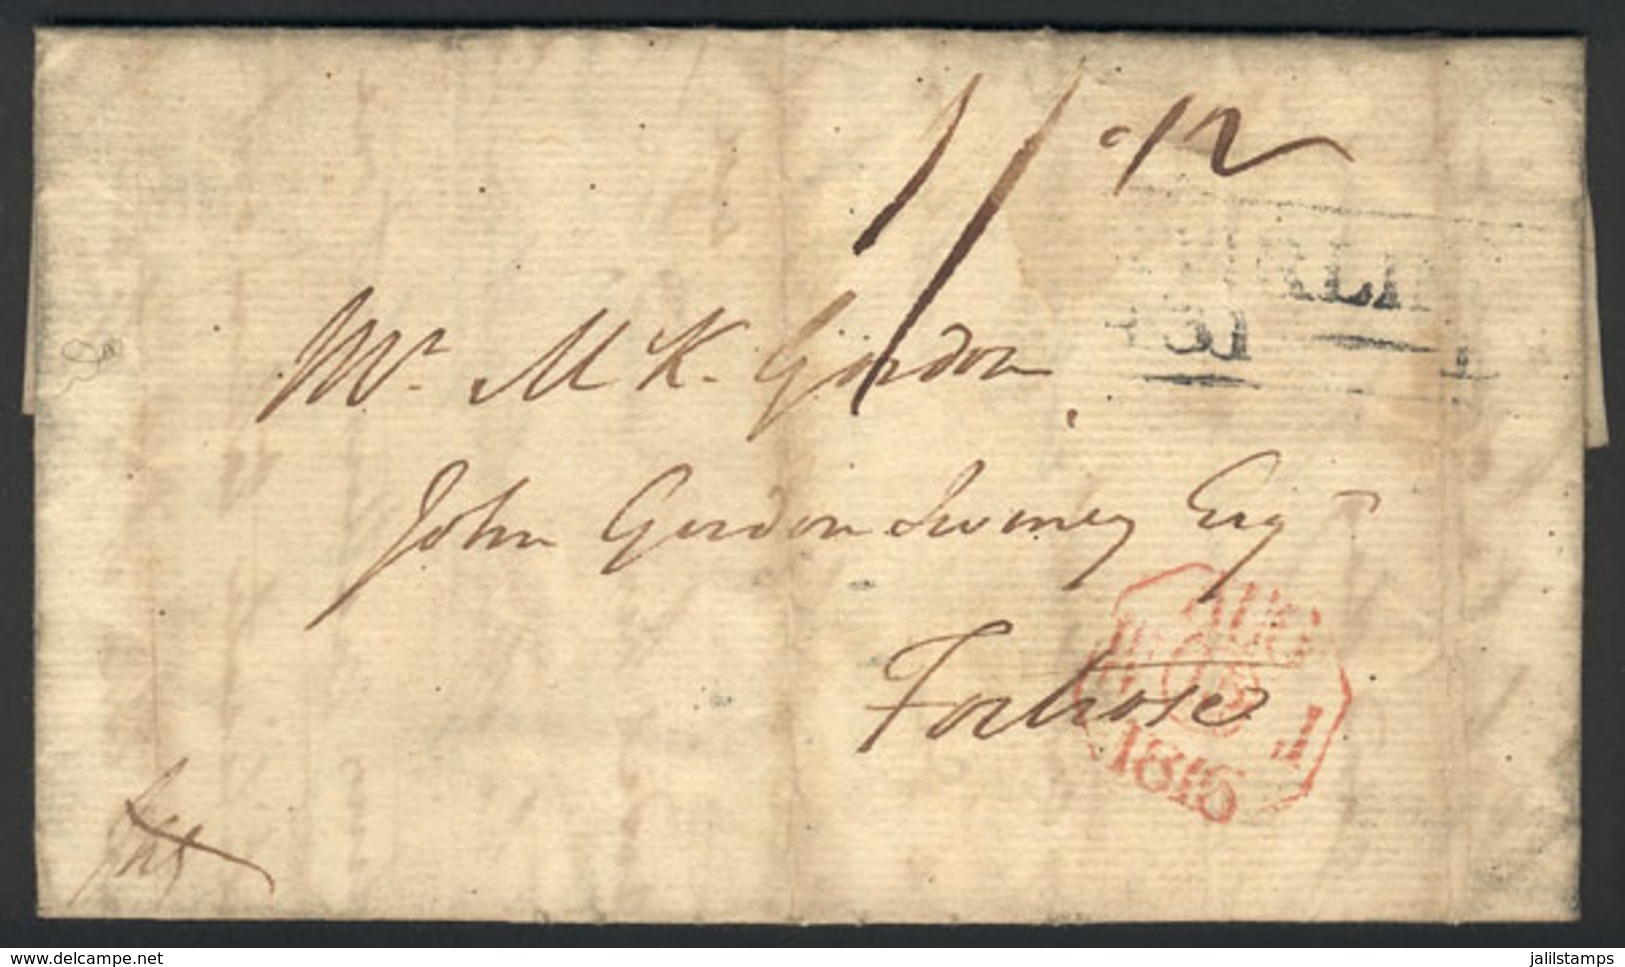 1/1 12
Mr. M K. Gordon
John Gordon Swiney Esqr
Fortrose
AUG
1
1816
www.delcampe.net
jalilstamps